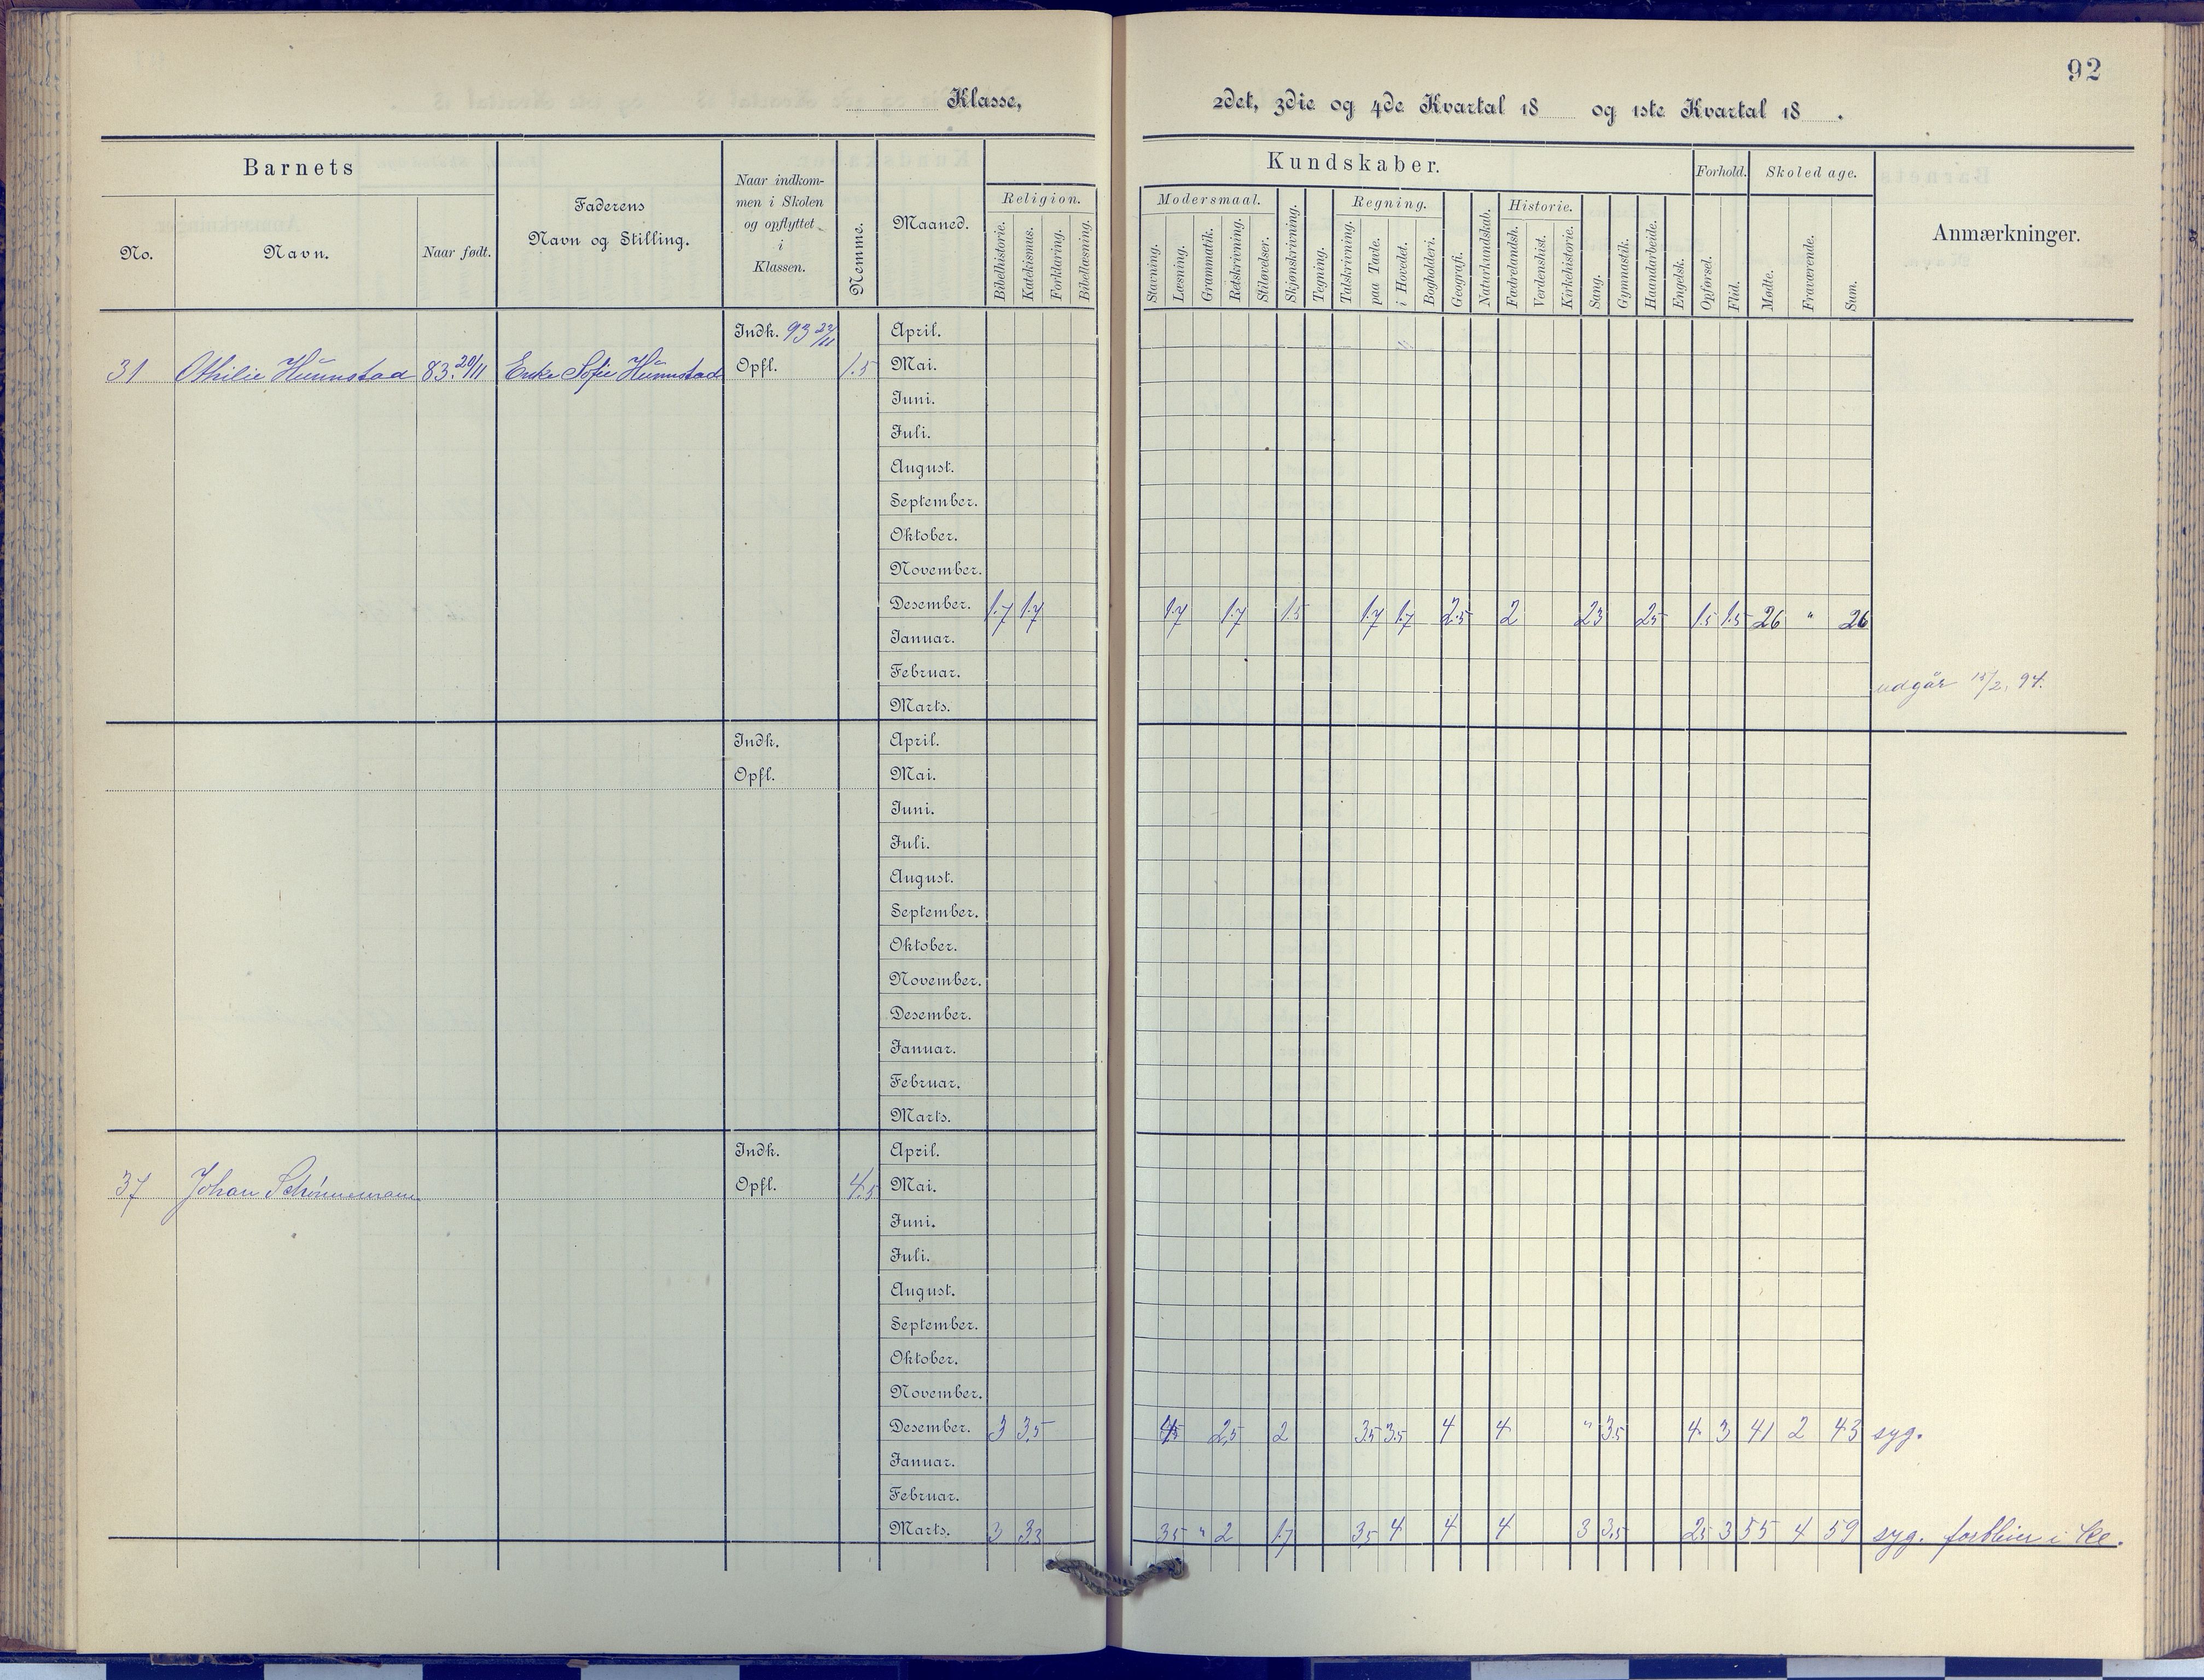 92
Klasse, 2det, 3die og 4de Kvartal 18 og 1ste Kvartal 18 .
Barnets
No.
Navn.
Naar født.
Faderens
Navn og Stilling.
Naar indkom-
men i Skolen
og opflyttet
i
Klassen.
Nemme.
Maaned.
Kundskaber.
Religion.
Bibelhistorie.
Katekismus.
Forklaring.
Bibellæsning.
Modersmaal.
Stavning.
Læsning.
Grammatik.
Retskrivning.
Stiløvelser.
Skjønskrivning.
Tegning.
Regning.
Talskrivning.
paa Tavle.
i Hovedet.
Bogholderi.
Geografi.
Naturkundskab.
Historie.
Fædrelandsh.
Verdenshist.
Kirkehistorie.
Sang.
Gymnastik.
Haandarbeide.
Engelsk.
Forhold.
Opførsel.
Flid.
Skoledage.
Mødte.
Fraværende.
Sum.
Anmærkninger.
Indk. 93 22/11 April.
31 Othilie Hunnstad 83. 20/11 Enke Sofie Hunnstad Opfl. 1.5 Mai.
Juni.
Juli.
August.
September.
Oktober.
November.
Desember. 1.7 1.7 1.7 1.7 1.5 1.7 1.7 2.5 2 23 25 1.5 1.5 26 " 26
Januar.
Februar.
udgår 15/2, 94.
Marts.
Indk. April.
Opfl. Mai.
Juni.
Juli.
August.
September.
Oktober.
November.
Desember.
Januar.
Februar.
Marts.
Indk. April.
37 Johan Schønnemann Opfl. 4.5 Mai.
Juni.
Juli.
August.
September.
Oktober.
November.
Desember. 3 3,5 2,5 2 35 3.5 4 4 " 3.5 4 3 41 2 43 syg.
Januar.
Februar.
Marts. 3 33 35 " 2 1.7 3,5 4 4 4 3 3,5 25 3 55 4 59 syg. forbliver i Kl.